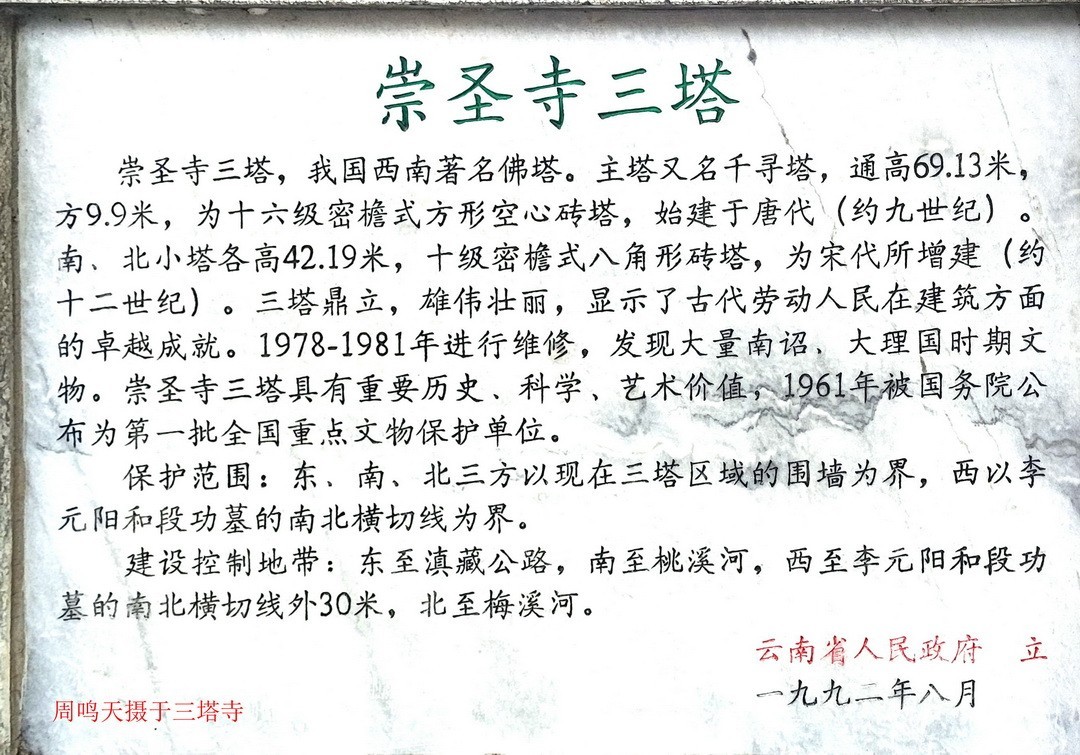 崇圣寺三塔
崇圣寺三塔，我国西南著名佛塔。主塔又名千寻塔，通高69.13米，
方9.9米，为十六级密檐式方形空心砖塔，始建于唐代（约九世纪）。
南、北小塔各高42.19米，十级密檐式八角形砖塔，为宋代所增建（约
十二世纪）。三塔鼎立，雄伟壮丽，显示了古代劳动人民在建筑方面
的卓越成就。1978-1981年进行维修，发现大量南诏、大理国时期文
物。崇圣寺三塔具有重要历史、科学、艺术价值，1961年被国务院公
布为第一批全国重点文物保护单位。
保护范围：东、南、北三方以现在三塔区域的围墙为界，西以李
元阳和段功墓的南北横切线为界。
建设控制地带：东至滇藏公路，南至桃溪河，西至李元阳和段功
墓的南北横切线外30米，北至梅溪河。
云南省人民政府 立
一九九二年八月
周鸣天摄于三塔寺